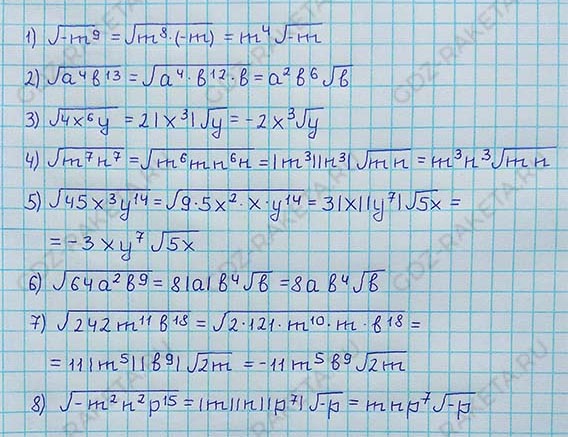 1) √-m⁹ = √m⁸·(-m) = m⁴√-m
2) √a⁴b¹³ = √a⁴·b¹²·b = a²b⁶√b
3) √4x⁶y = 2|x³|√y = -2x³√y
4) √m⁷n⁷ = √m⁶mn⁶n = |m³||n³|√mn = m³n³√mn
5) √45x³y¹⁴ = √9·5x²·x·y¹⁴ = 3|x||y⁷|√5x =
= -3xy⁷√5x
6) √64a²b⁹ = 8|a|b⁴√b = 8ab⁴√b
7) √242m¹¹b¹⁸ = √2·121·m¹⁰·m·b¹⁸ =
= 11|m⁵||b⁹|√2m = -11m⁵b⁹√2m
8) √-m²n²p¹⁵ = |m||n||p⁷|√-p = mnp⁷√-p
GDZ-RAKETA.RU